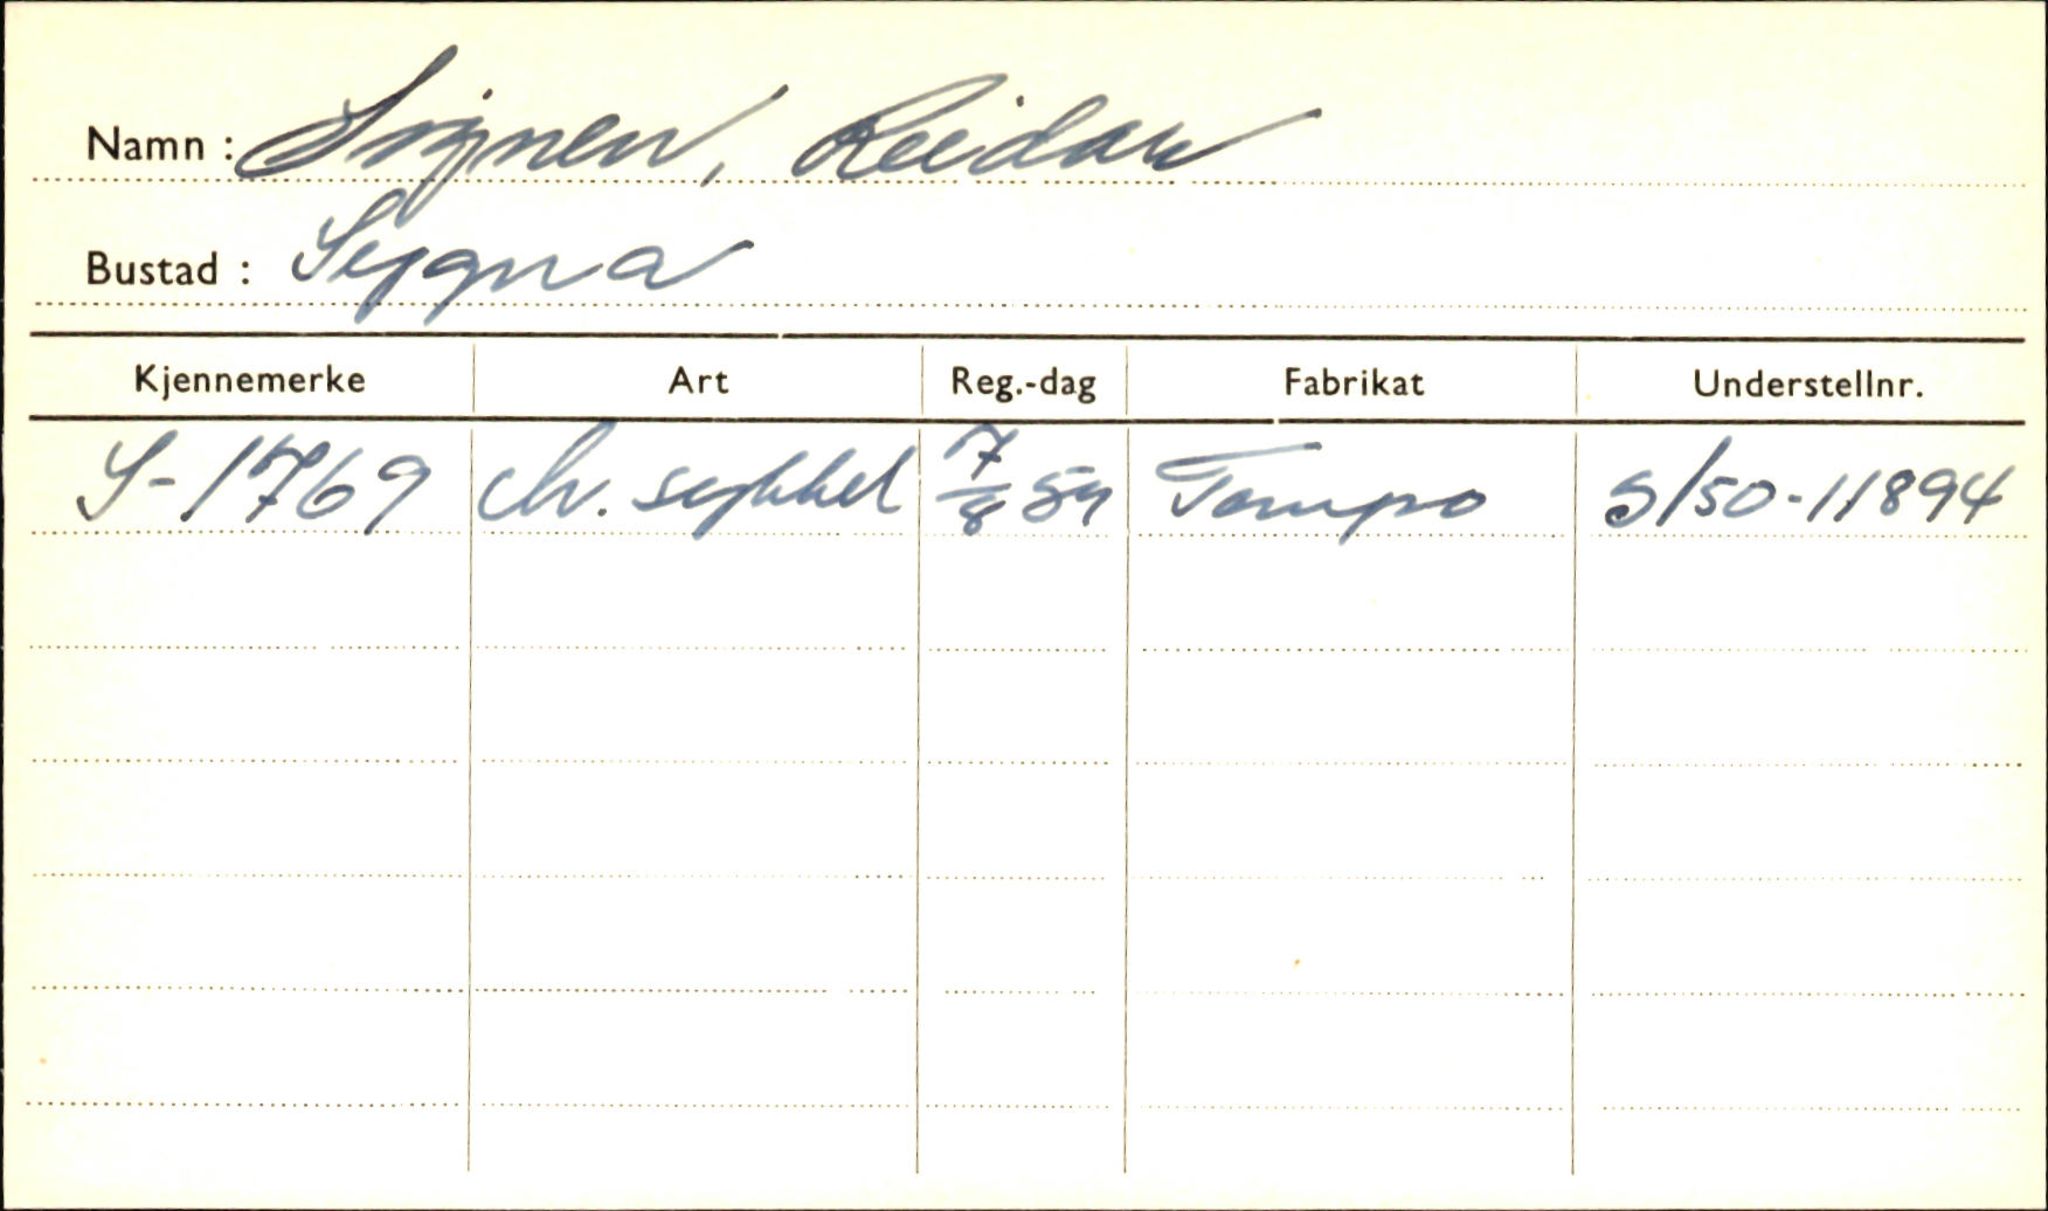 Namn : Signen, Reidar
Bustad : Sygna
Kjennemerke Art Reg.-dag Fabrikat Understellnr.
S-1769 M. sykkel 7/8 54 Tempo S/50-11894